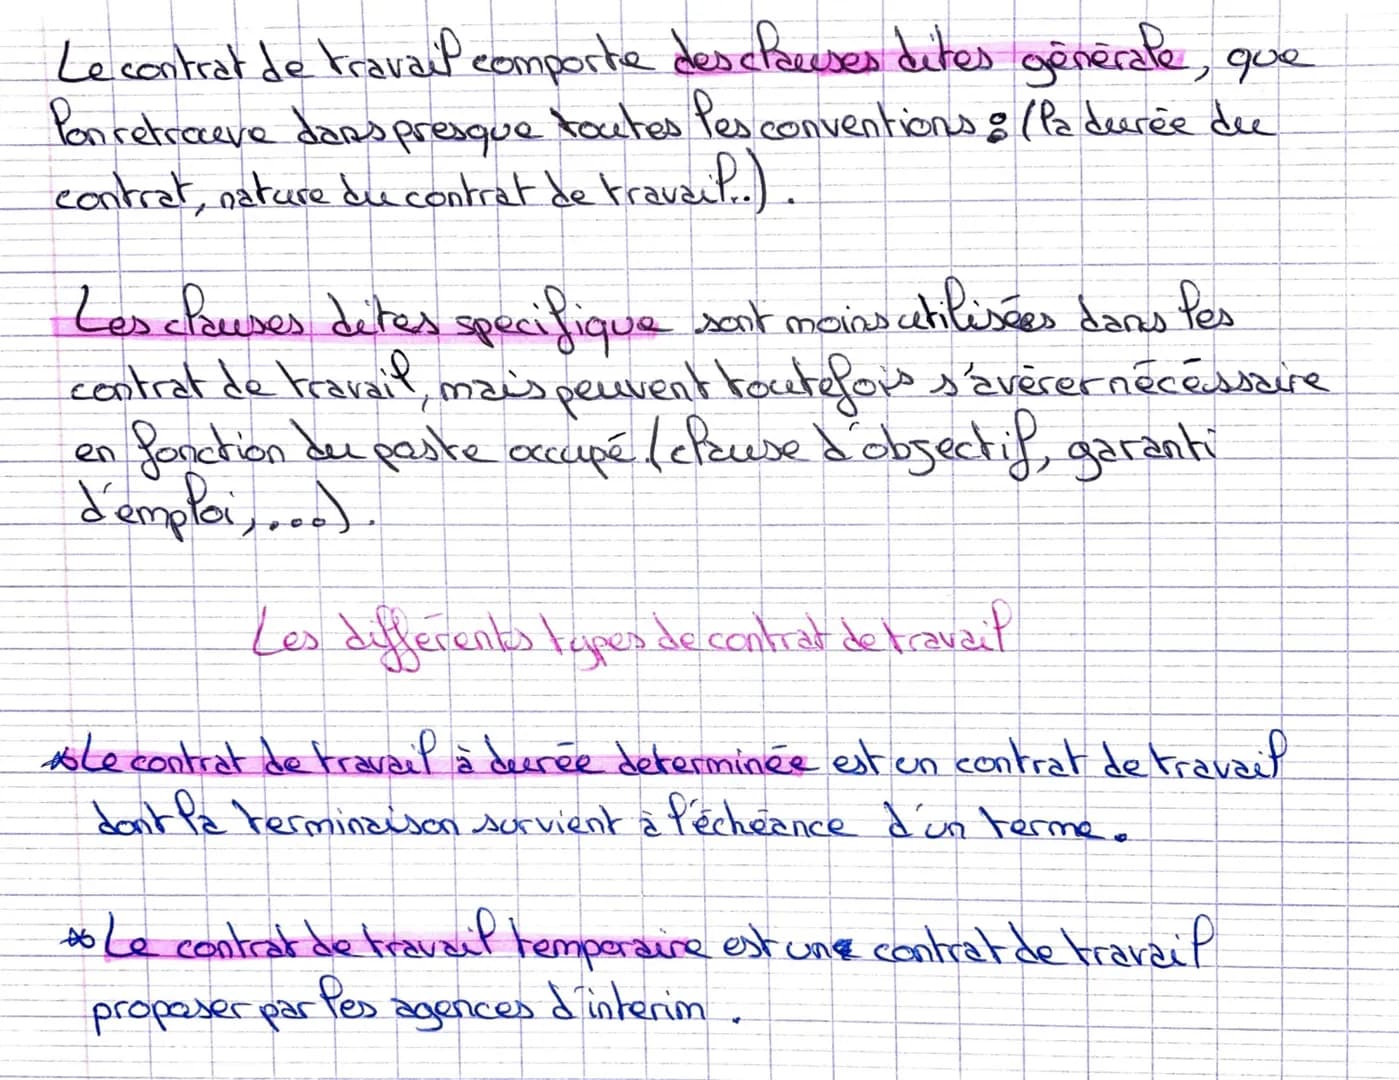 Le contrat de travail comporte des clauses dites générale, que
l'on retrouve dans presque toutes les conventions : (la durée du
contrat, nature du contrat de travail..).
Les clauses dites specifique sont moins utilisées dans les
contrat de travail, mais peuvent toutefois s'avérer nécéssaire
en fonction du poste occupé. (clause d'objectif, garanti
d'emploi,....).
Les différents types de contrat de travail
*Le contrat de travail à durée determinée est un contrat de travail
dont la terminaison survient à l'échéance d'un terme.
* Le contrat de travail temporaire est une contrat de travail
proposer par les agences d'interim.